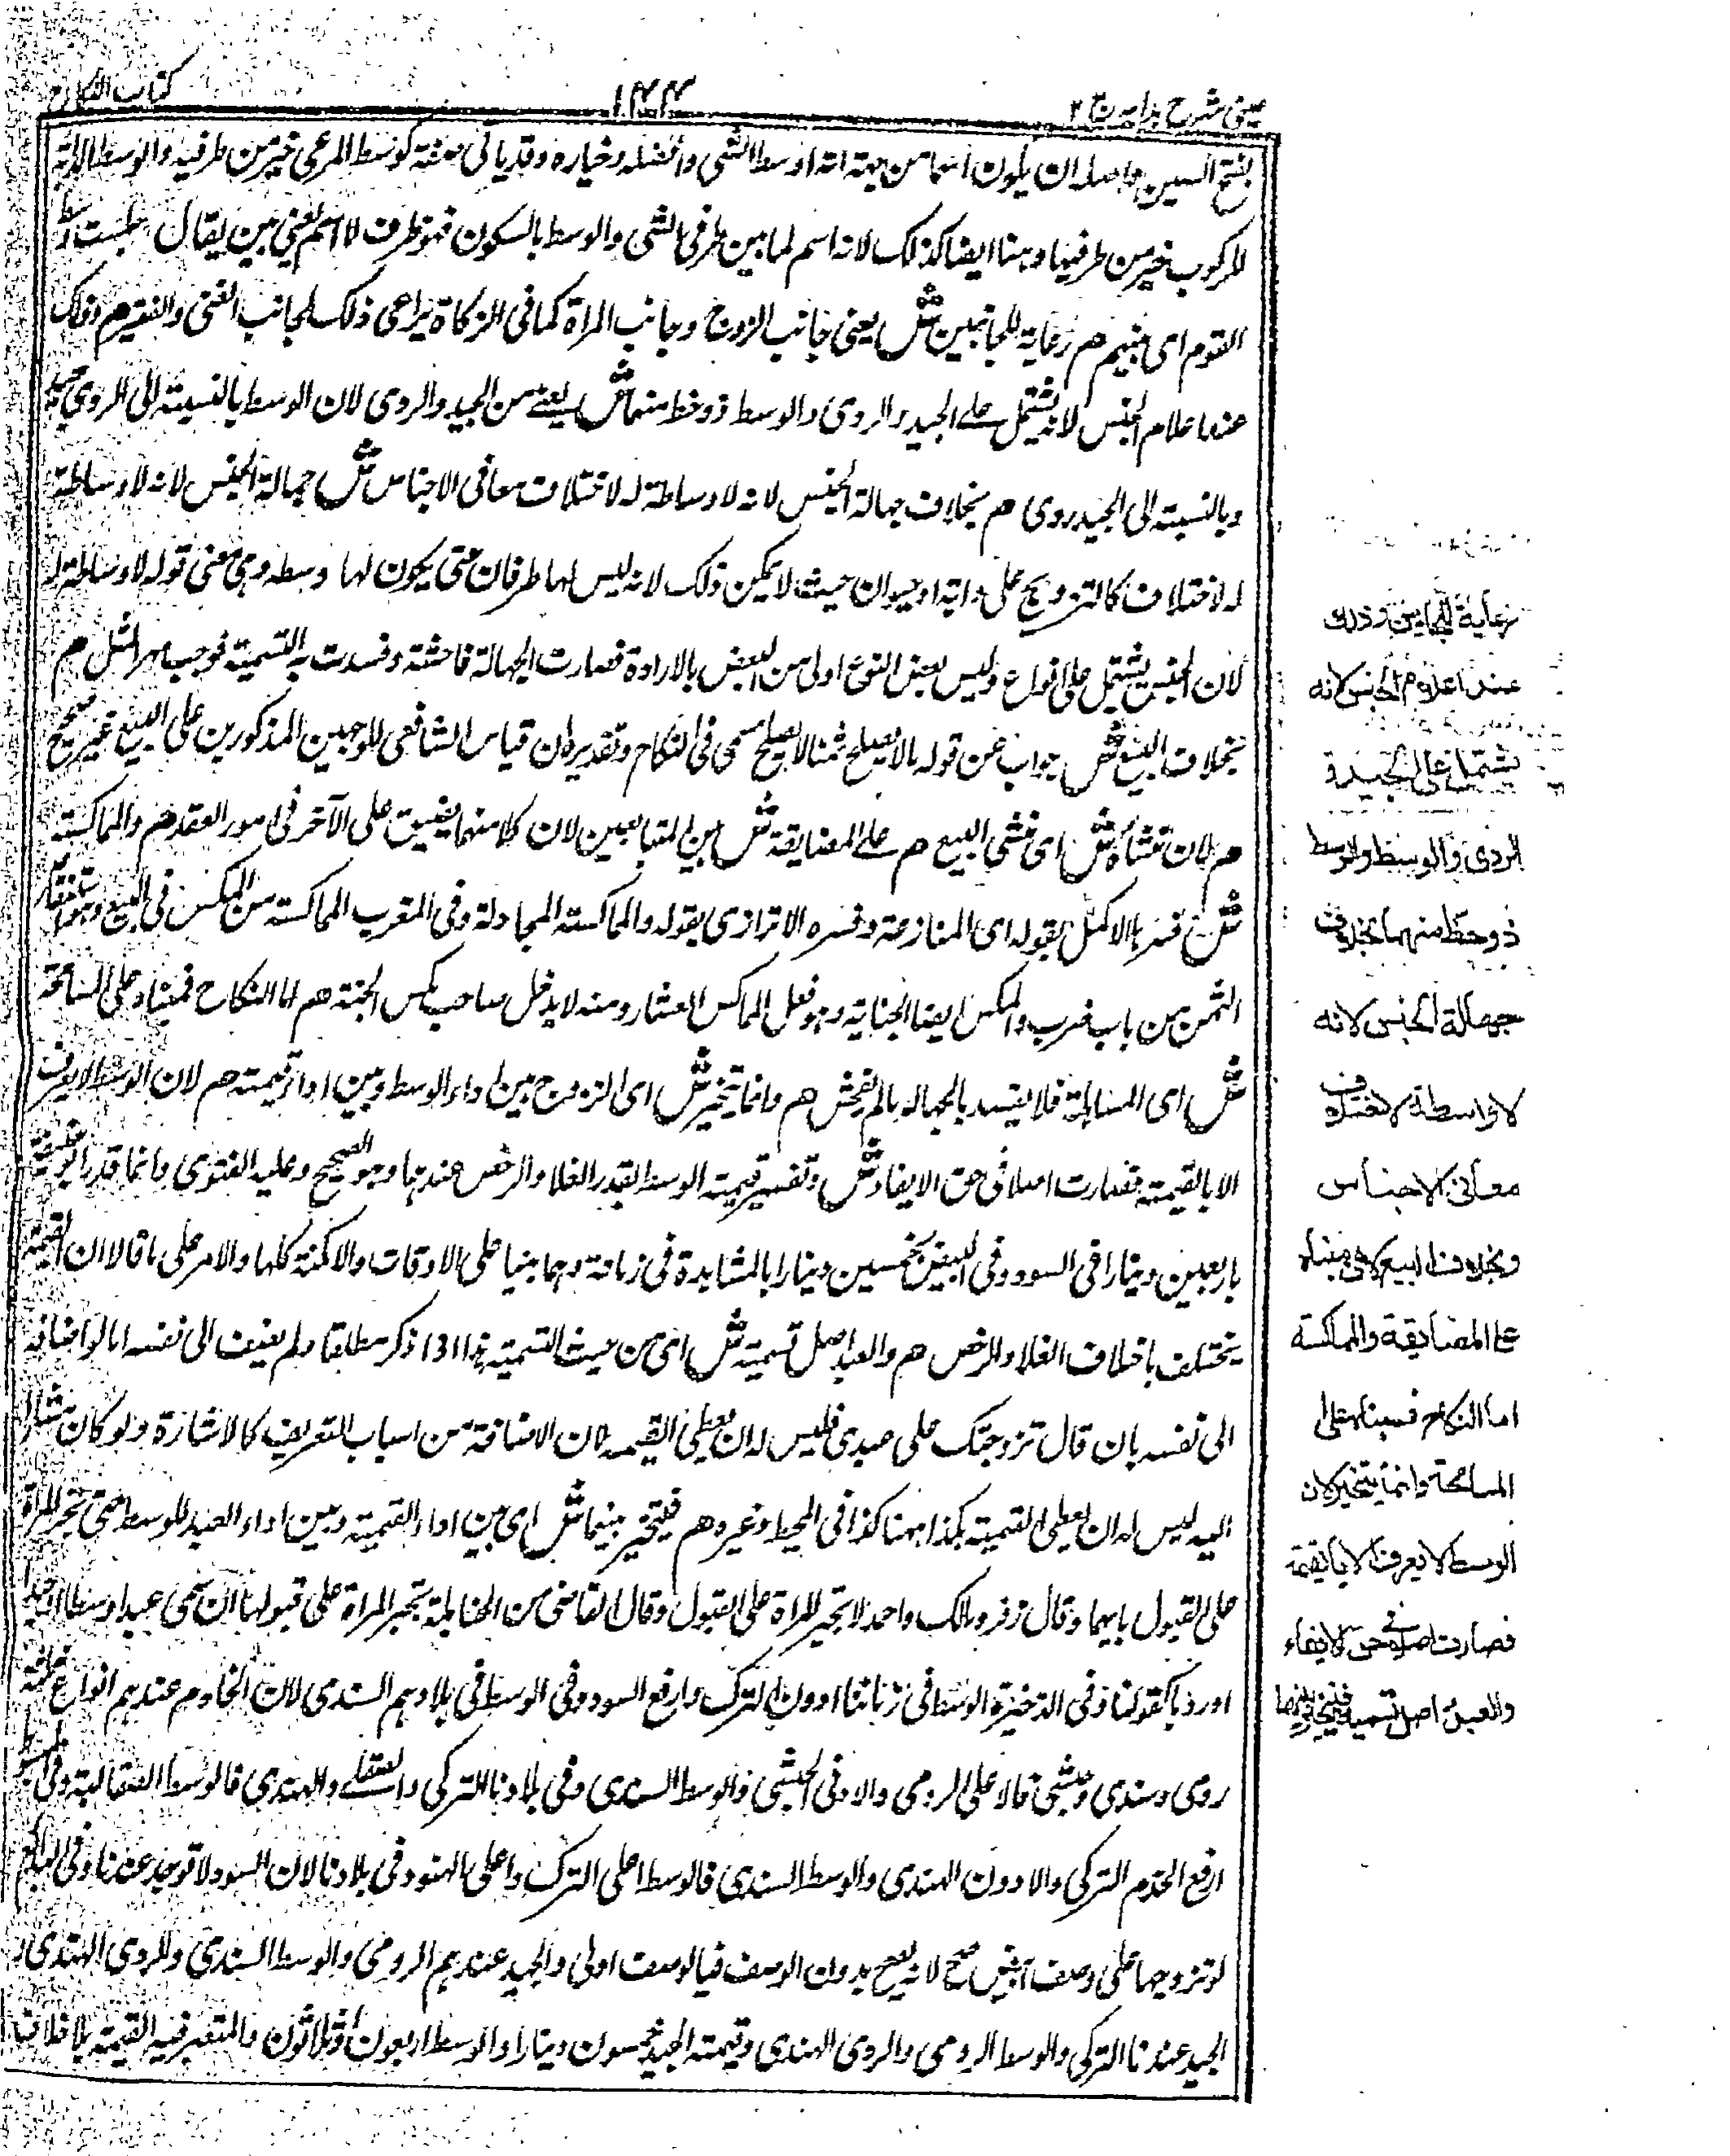 عینی شرح ہدایہ ج ۲
۱۴۴
كتاب النكاح
بفتح السين واصله ان يكون اسما من جهة انه اوسط الشی وافضله وخياره وقد ياتی صفة كوسط المرعی خير من طرفيه والوسط الدابة
للركوب خير من طرفيها وهنا ايضا كذلك لانه اسم لما بين طرفی الشی والوسط بالسكون فهو ظرف لا اسم لمعنی بين يقال جلست وسط
القوم ای بينهم هم رعاية للجانبين ش يعنی جانب الزوج وجانب المراة كما فی الزكاة يراعی ذلك لجانب الغنی والفقير هم وذلك
عند اعلام الجنس لانه يشتمل علی الجيد والردی والوسط ذو حظ منهما ش يعنی من الجيد والردی لان الوسط بالنسبة الی الردی جيد
وبالنسبة الی الجيد ردی هم بخلاف جهالة الجنس لانه لا وساطة له لاختلاف معانی الاجناس ش جهالة الجنس لانه لا وساطة
له لاختلاف كالتزويج علی دابة او حيوان حيث لا يمكن ذلك لانه ليس لها طرفان حتی يكون لها وسطه وهی معنی قوله لا وساطة له
لان الجنس يشتمل علی انواع وليس بعض النوع اولی من البعض بالارادة فصارت الجهالة فاحشة وفسدت به التسمية فوجب مهر المثل هم
بخلاف البيع ش جواب عن قوله ما لا يصلح ثمنا لا يصلح مسمی فی النكاح وتقديره ان قياس الشافعی للوجهين المذكورين علی البيع غير صحيح
هم لان منشأه ش ای منشی البيع هم علی المضايقة ش بين المتبايعين لان كلا منهما يضيق علی الآخر فی امور العقد هم والمماكسة
ش فسره الاكمل بقوله ای المنازعة وفسره الاترازی بقوله والمماكسة المجادلة وفی المغرب المماكسة من المكس فی البيع وهو استنقاص
الثمن من باب ضرب والمكس ايضا الجناية وهو فعل الماكس العشار ومنه لا يدخل صاحب مكس الجنة هم اما النكاح فمبناه علی المسامحة
ش ای المساهلة فلا يفسد بالجهالة ما لم يفحش هم وانما يتخير ش ای الزوج بين اداء الوسط وبين اداء قيمته هم لان الوسط لا يعرف
الا بالقيمة فصارت اصلا فی حق الايفاء ش وتفسير قيمته الوسط القدر الغلاء والرخص عندهما وهو الصحيح وعليه الفتوی وانما قدر ابو حنيفة
باربعين دينارا فی السود وفی البيض بخمسين دينارا بالمشاهدة فی زمانه وهما بنيا علی الاوقات والامكنة كلها والامر علی ما قالا ان القيمة
يختلف باختلاف الغلاء والرخص هم والعبد اصل تسمية ش ای من حيث التسمية هذا اذا ذكر مطلقا ولم يضف الی نفسه اما لو اضافه
الی نفسه بان قال تزوجتك علی عبدی فليس له ان يعطی القيمة لان الاضافة من اسباب التعريف كالاشارة ولو كان مشارا
اليه ليس له ان يعطی القيمة هكذا ههنا كذا فی المحيط وغيره هم فيتخير بينهما ش ای بين اداء القيمة وبين اداء العبد للوسط حتی تجبر المراة
علی القبول بايهما وقال زفر ومالك واحمد لا تجبر المراة علی القبول وقال القاضی من الحنابلة تجبر المراة علی قبولها ان سمی عبدا وسطا او جيدا
او رديا كقولنا وفی الذخيرة الوسط فی زماننا ادون الترك وارفع السود وفی الوسط فی بلادهم السندی لان الخادم عندهم انواع ثلثة
رومی وسندی وحبشی فالاعلی الرومی والادنی الحبشی والوسط السندی وفی بلادنا التركی والصقلی والهندی فالوسط الصقالبة وفی المبسوط
ارفع الخدم التركی والادون الهندی والوسط السندی فالوسط اعلی الترك واعلی الهنود فی بلادنا لان السود لا توجد عندنا وفی البدائع
لو تزوجها علی وصف ابيض صح لانه يصح بدون الوصف فبالوصف اولی والجيد عندهم الرومی والوسط السندی والردی الهندی و
الجيد عندنا التركی والوسط الرومی والردی الهندی وقيمة الجيد خمسون دينارا والوسط اربعون وثلاثون والمعتبر فيه القيمة بلا خلاف
رعاية للجانبين وذلك
عند اعلام الجنس لانه
يشتمل علی الجيد و
الردی والوسط والوسط
ذو حظ منهما بخلاف
جهالة الجنس لانه
لا واسطة لاختلاف
معانی الاجناس
وبخلاف البيع لان مبناه
علی المضايقة والمماكسة
اما النكاح فمبناه علی
المسامحة وانما يتخير لان
الوسط لا يعرف الا بالقيمة
فصارت اصلا فی حق الايفاء
والعبد اصل تسمية فيتخير بينهما